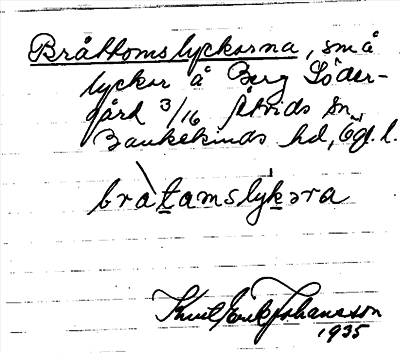 Bråttomslyckorna, små
lyckor å Berg Söder-
gård 3/16 Åtvids sn
Bankekinds hd, Ög. l.
bratamslykəra
Knut Erik Johansson
1935